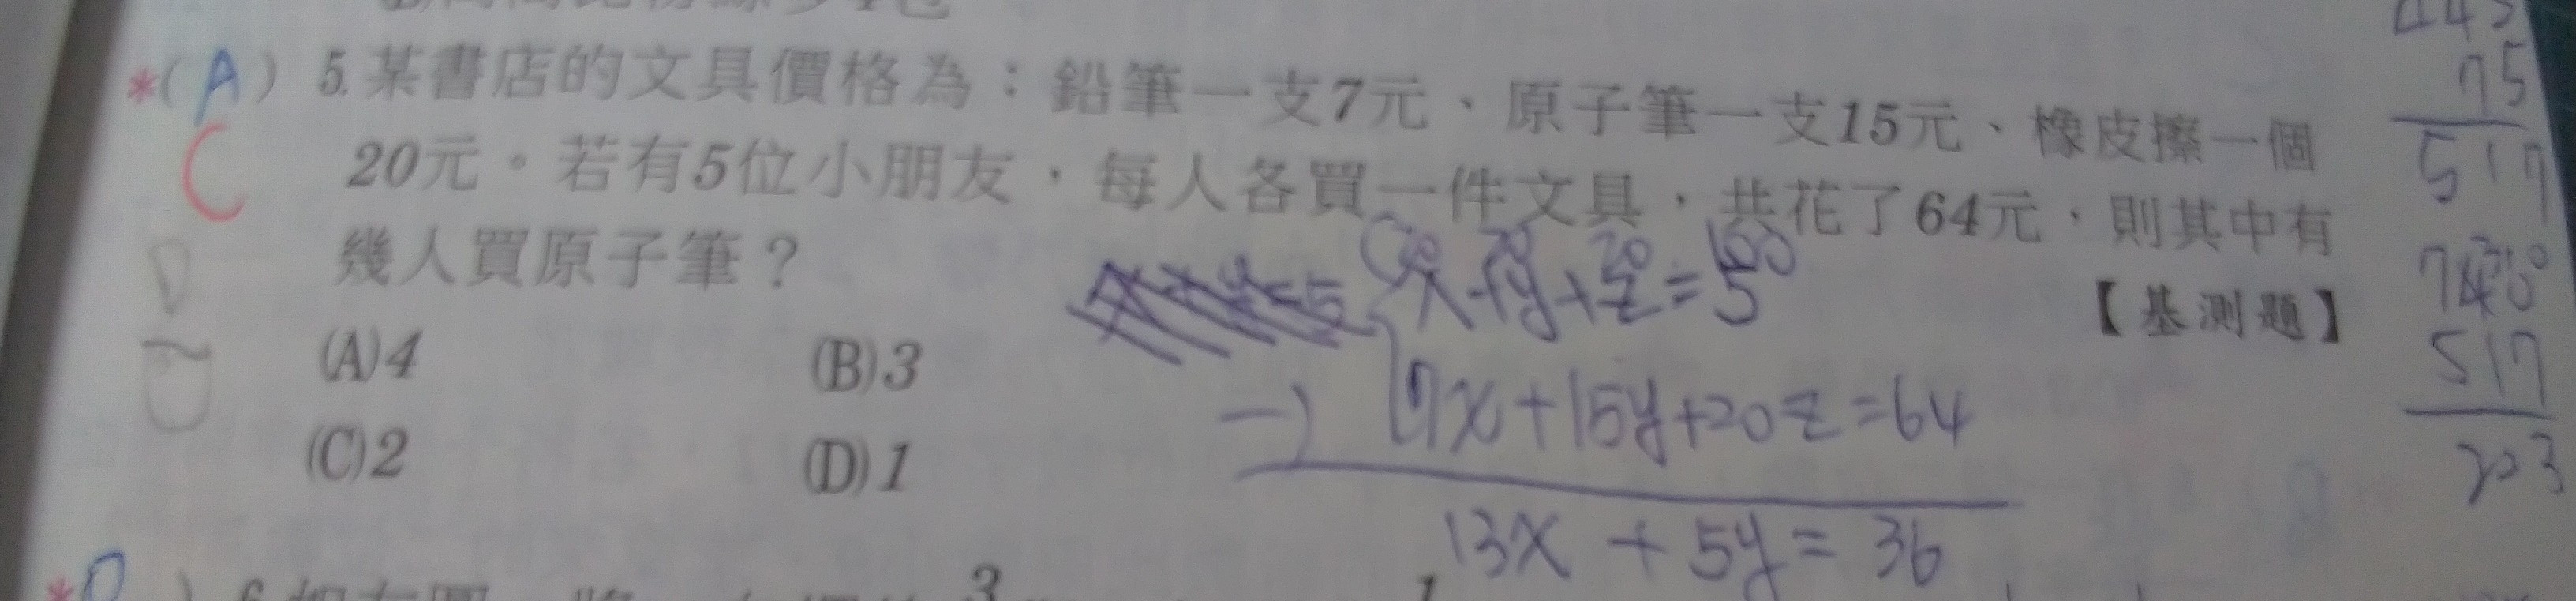 *(A) 5.某書店的文具價格為：鉛筆一支7元、原子筆一支15元、橡皮擦一個
C
20元。若有5位小朋友，每人各買一件文具，共花了64元，則其中有
幾人買原子筆？
【基測題】
(A)4 (B)3
(C)2 (D)1
20 20 20 100
x+y+z=5
－) 7x+15y+20z=64
13x + 5y = 36
75
517
517
203